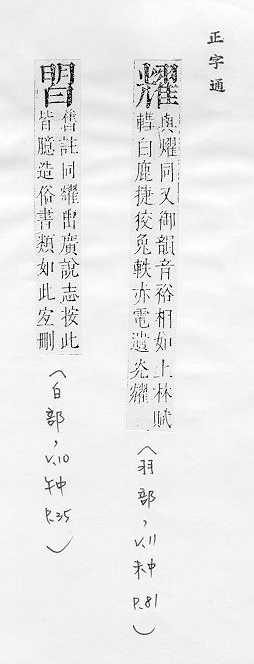 正字通
耀
與燿同又御韻音裕相如上林賦
轊白鹿捷狡兔軼赤電遺光耀
（羽部，
v.11
未中
p.81）
舊註同耀出廣說志按此
皆臆造俗書類如此宜刪
（白部，
v.10
午中
p.35）